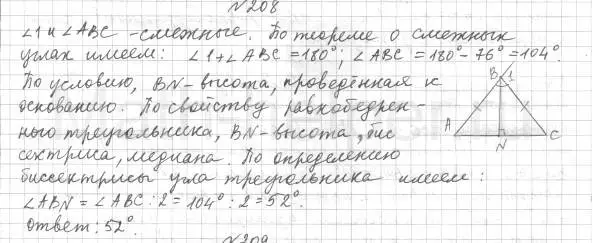 №208
∠1 и ∠ABC - смежные. По теореме о смежных
углах имеем: ∠1+∠ABC=180°; ∠ABC=180°-76°=104°.
По условию, BN-высота, проведённая к
основанию. По свойству равнобедрен-
ного треугольника, BN-высота, бис
сектриса, медиана. По определению
биссектрисы угла треугольника имеем:
∠ABN=∠ABC:2=104°:2=52°.
Ответ: 52°.
№209
B 1
A N C